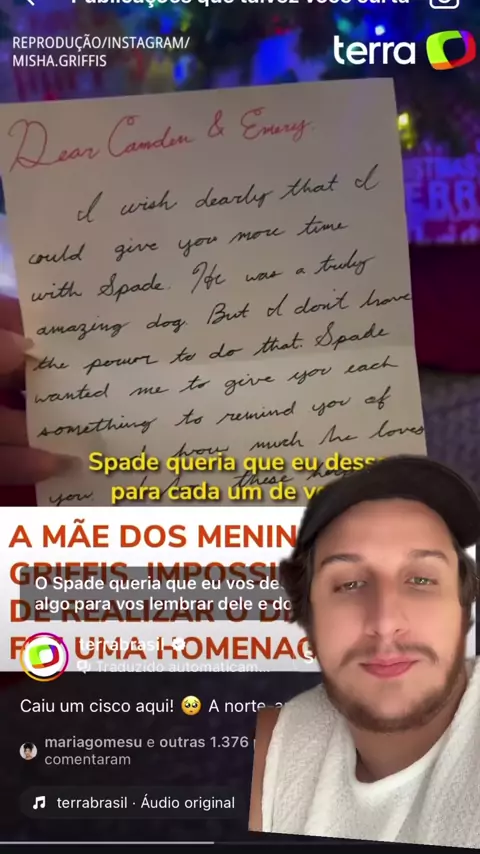 Publicações que talvez você curta
REPRODUÇÃO/INSTAGRAM/
MISHA.GRIFFIS
terra
Dear Camden & Emery,
I wish dearly that I
could give you more time
with Spade. He was a truly
amazing dog. But I don't have
the power to do that. Spade
wanted me to give you each
something to remind you of
how much he loves
you.
these
Spade queria que eu
para cada um de
A MÃE DOS
GRIFFIS,
DE REALIZAR O
UMA
O Spade queria que eu vos
algo para vos lembrar dele e do
terrabrasil
Traduzido automaticam...
Caiu um cisco aqui! 🥺 A
mariagomesu e outras 1.376
comentaram
terrabrasil · Áudio original